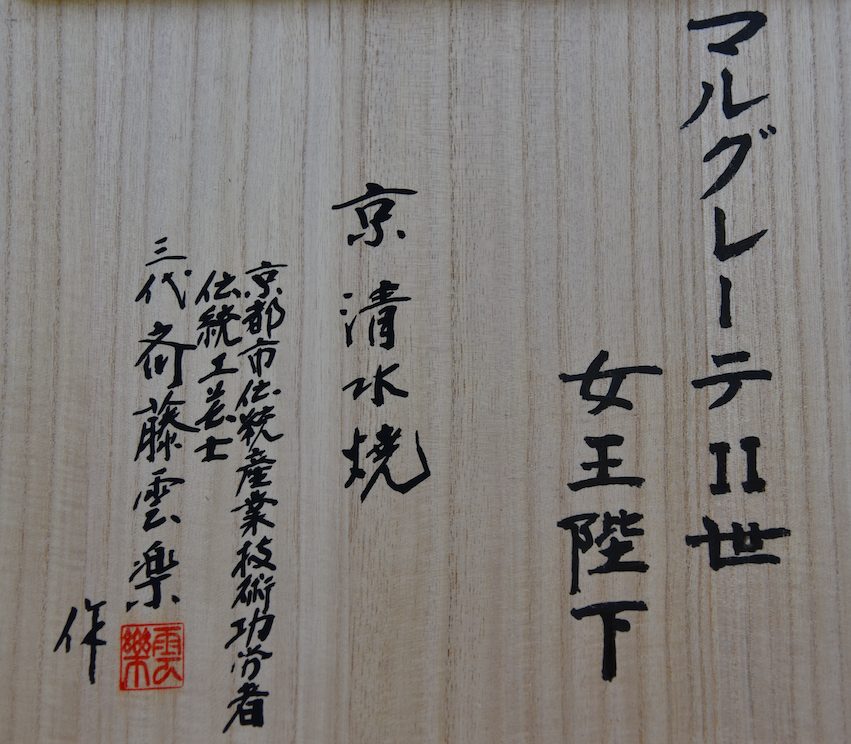 マルグレーテII世
女王陛下
京 清水焼
京都市伝統産業技術功労者
伝統工芸士
三代 斎藤雲楽
作
雲樂